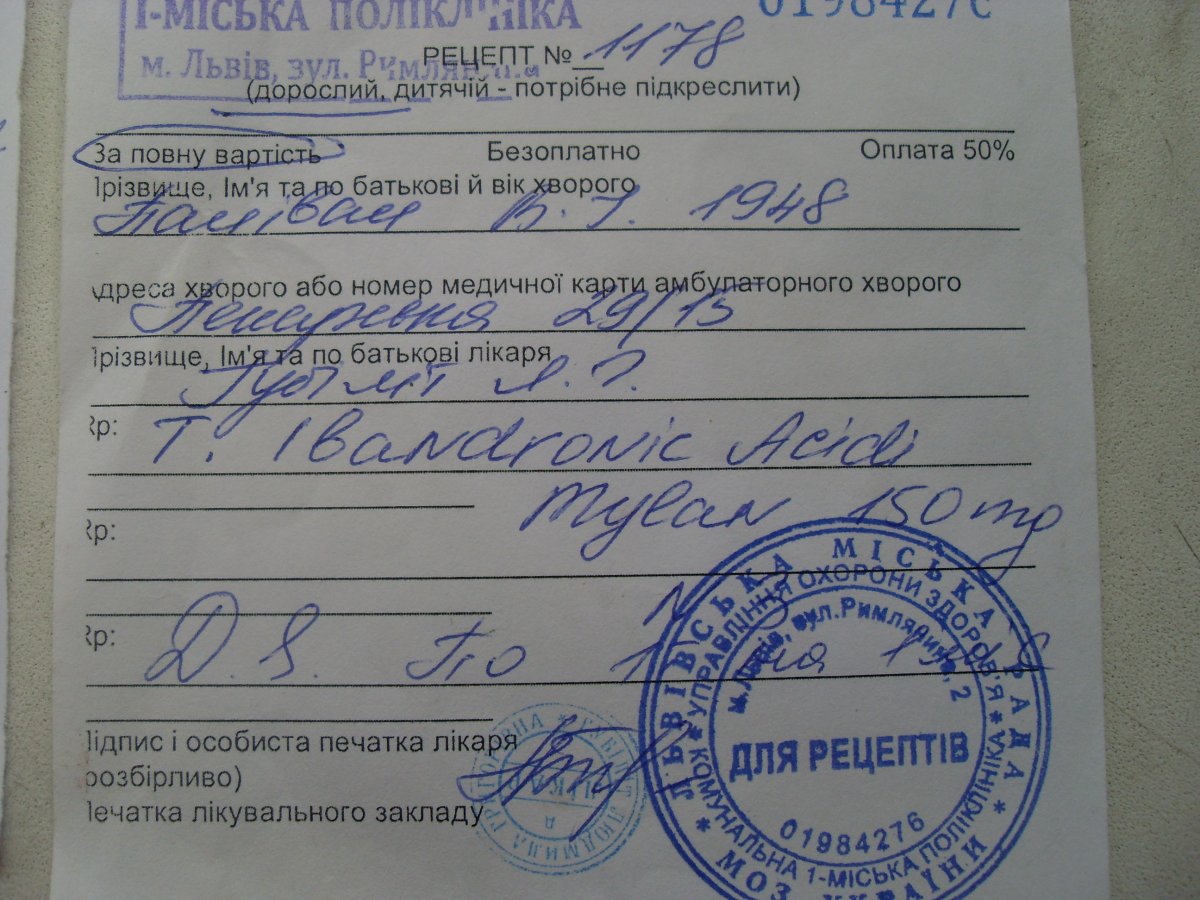 І-МІСЬКА ПОЛІКЛІНІКА
01984276
м. Львів, вул. Римлянина
РЕЦЕПТ № 1178
(дорослий, дитячій - потрібне підкреслити)
За повну вартість Безоплатно Оплата 50%
Прізвище, Ім'я та по батькові й вік хворого
В. І. 1948
Адреса хворого або номер медичної картки амбулаторного хворого
29/13
Прізвище, Ім'я та по батькові лікаря
Rp: T. Ibandronic Acidi
Mylan 150 mg
Rp:
Rp: D. S. По 1 на
Підпис і особиста печатка лікаря
(розбірливо)
Печатка лікувального закладу
ЛЬВІВСЬКА МІСЬКА РАДА
УПРАВЛІННЯ ОХОРОНИ ЗДОРОВ'Я
м.Львів, вул.Римлянина, 2
ДЛЯ РЕЦЕПТІВ
01984276
КОМУНАЛЬНА 1-МІСЬКА ПОЛІКЛІНІКА
МОЗ УКРАЇНИ